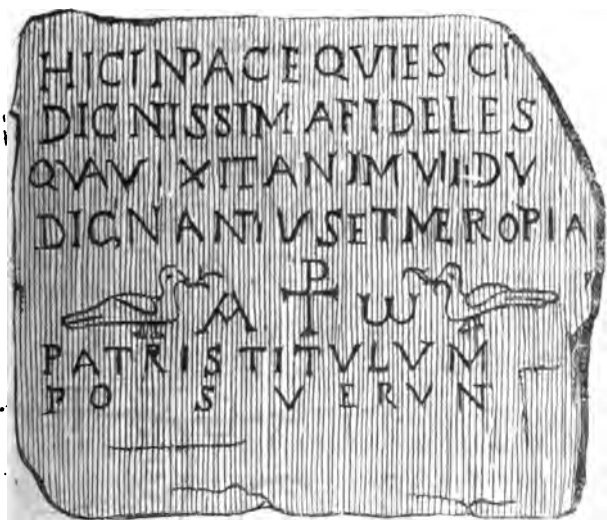 HIC IN PACE QVIESCI
DIGNISSIMA FIDELES
QVA VIXIT AN I M VII DV
DIGNANTIVS ET MEROPIA
A ⳨ ω
PATRIS TITVLVM
POSVERVN